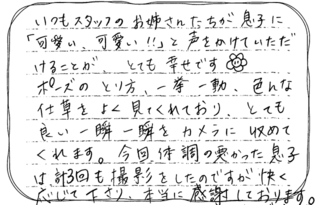 いつもスタッフのお姉さんたちが息子に
「可愛い、可愛い!!」と声をかけていただ
けることが、とても幸せです
ポーズのとり方、一挙一動、色んな
仕草をよく見てくれており、とても
良い一瞬一瞬をカメラに収めて
くれます。今回体調の悪かった息子
は計3回も撮影をしたのですが快く
応じて下さり、本当に感謝しております。